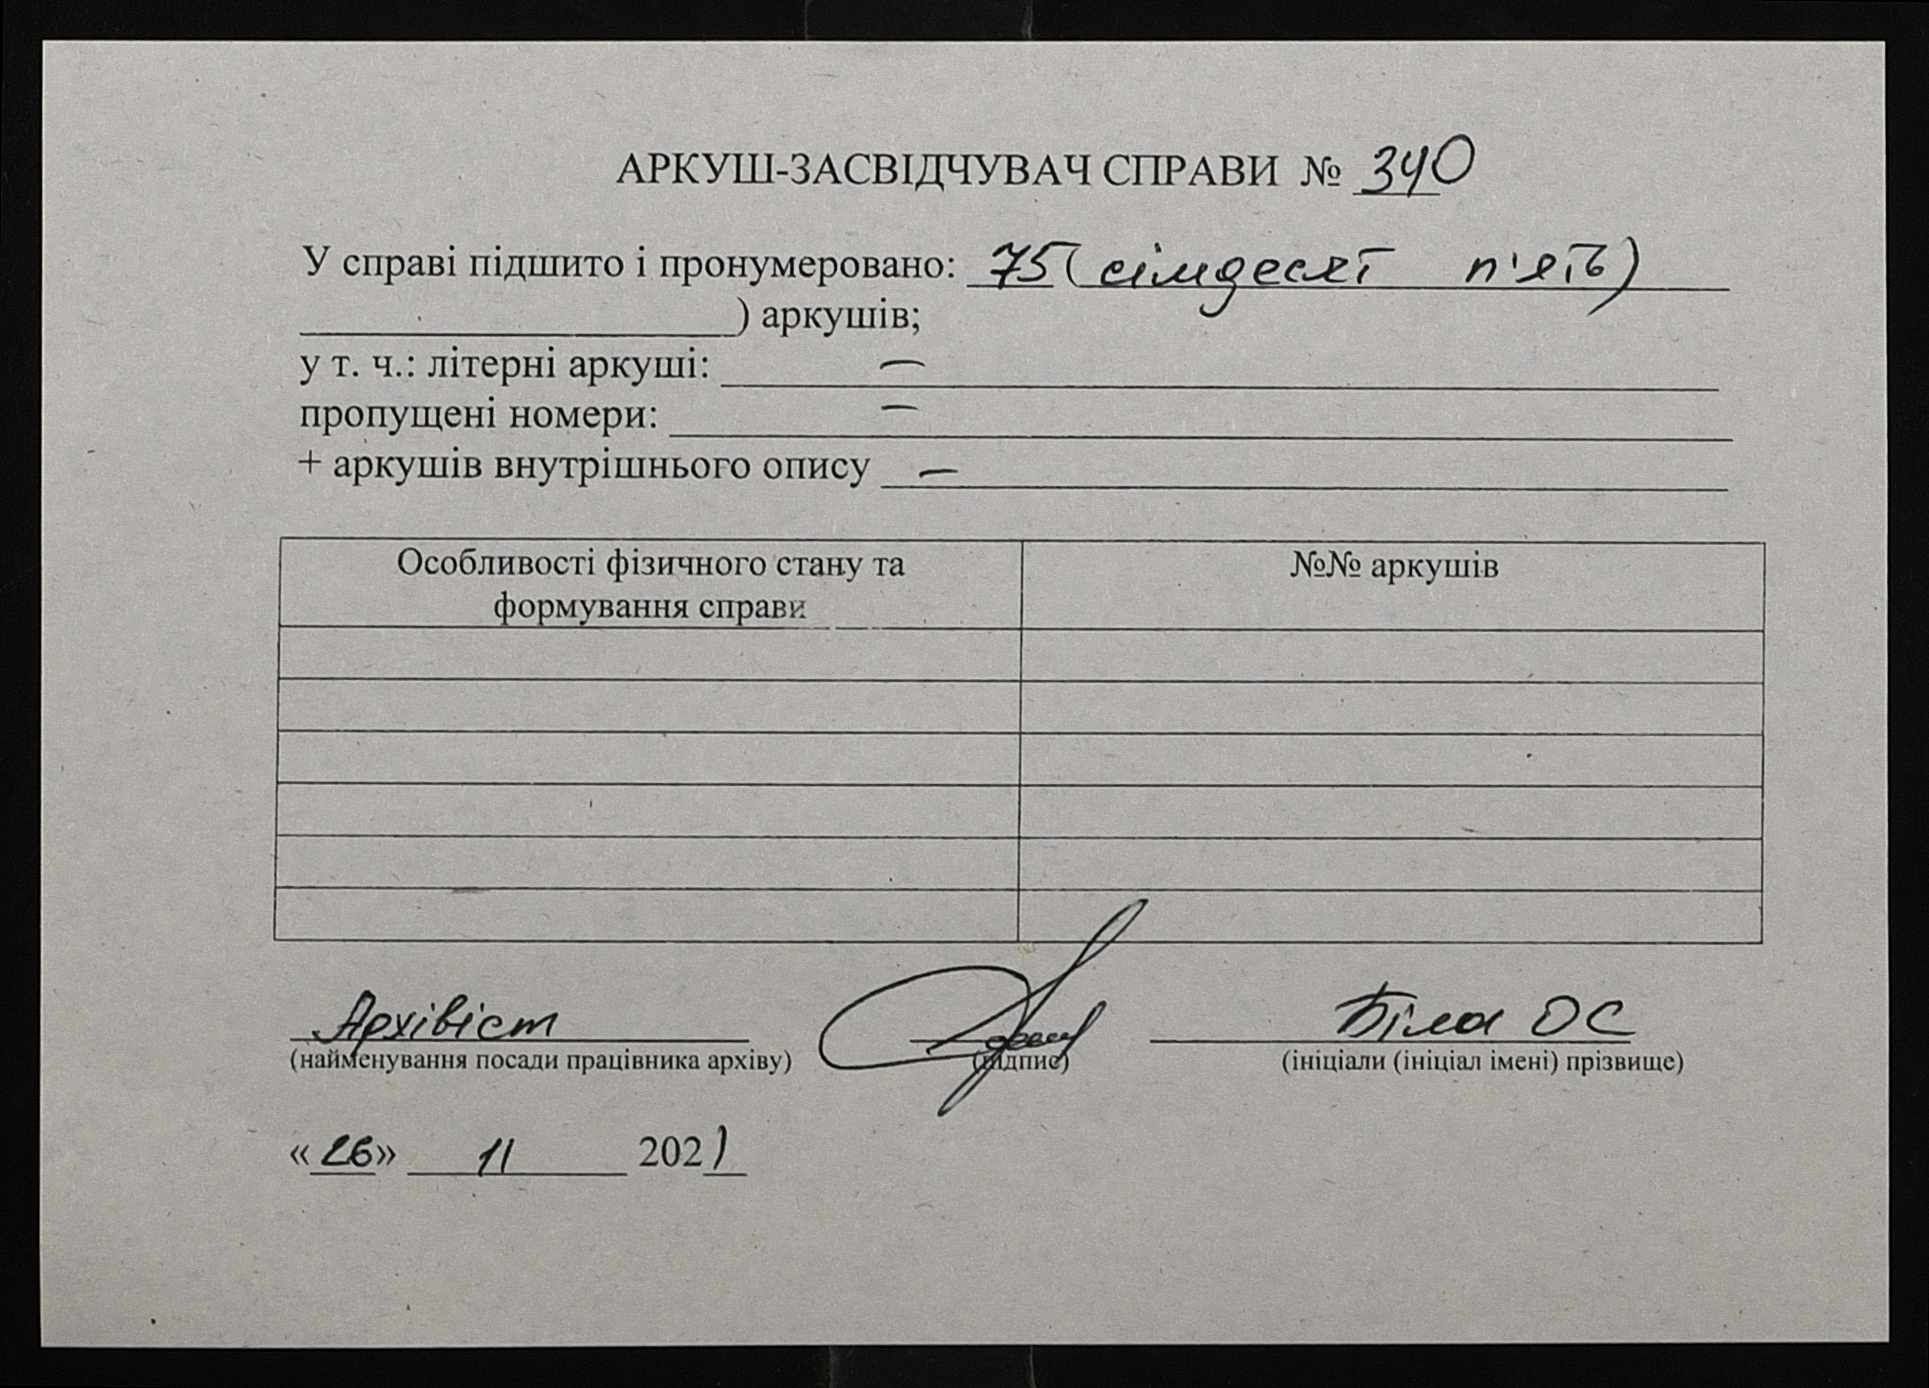 АРКУШ-ЗАСВІДЧУВАЧ СПРАВИ № 340
У справі підшито і пронумеровано: 75 (сімдесят п'ять)
) аркушів;
у т. ч.: літерні аркуші: —
пропущені номери: —
+ аркушів внутрішнього опису —
Особливості фізичного стану та
формування справи
№№ аркушів
Архівіст Біла О С
(найменування посади працівника архіву) (підпис) (ініціали (ініціал імені) прізвище)
«26» 11 2021